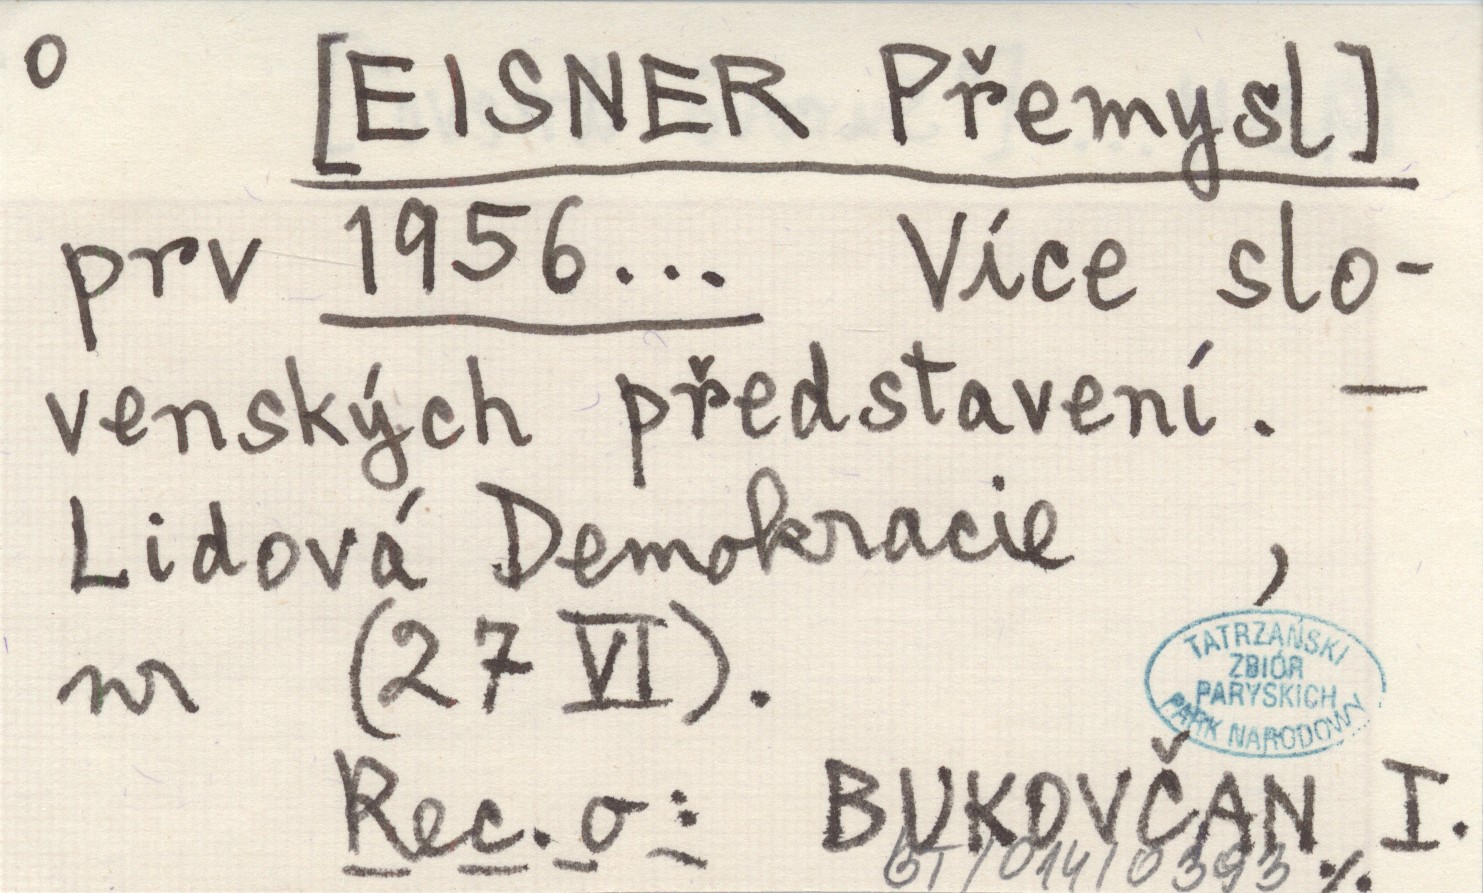 o [EISNER Přemysl]
prv 1956... Více slo-
venských představení. —
Lidová Demokracie ,
nr (27 VI).
TATRZAŃSKI
ZBIÓR
PARYSKICH
PARK NARODOWY
Rec. o: BUKOVČAN I.
BT/014/0393 ./.